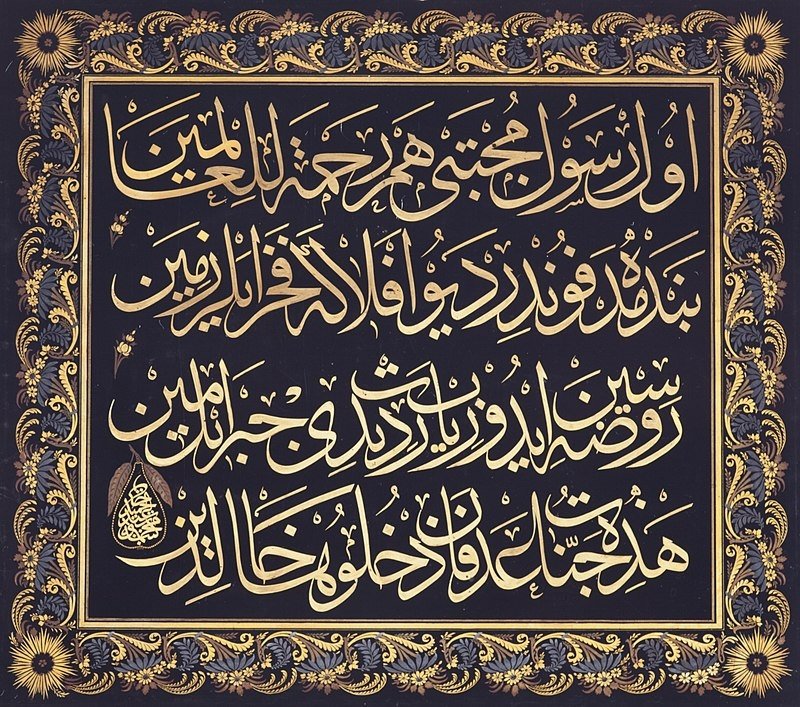 اول رسول مجتبى هم رحمة للعالمين
بنده مدفوندر ديو افلاكه فخر ايلر زمين
روضه سين ايدوب زيارت ديدى جبرائل امين
هذه جنات عدن فادخلوها خالدين